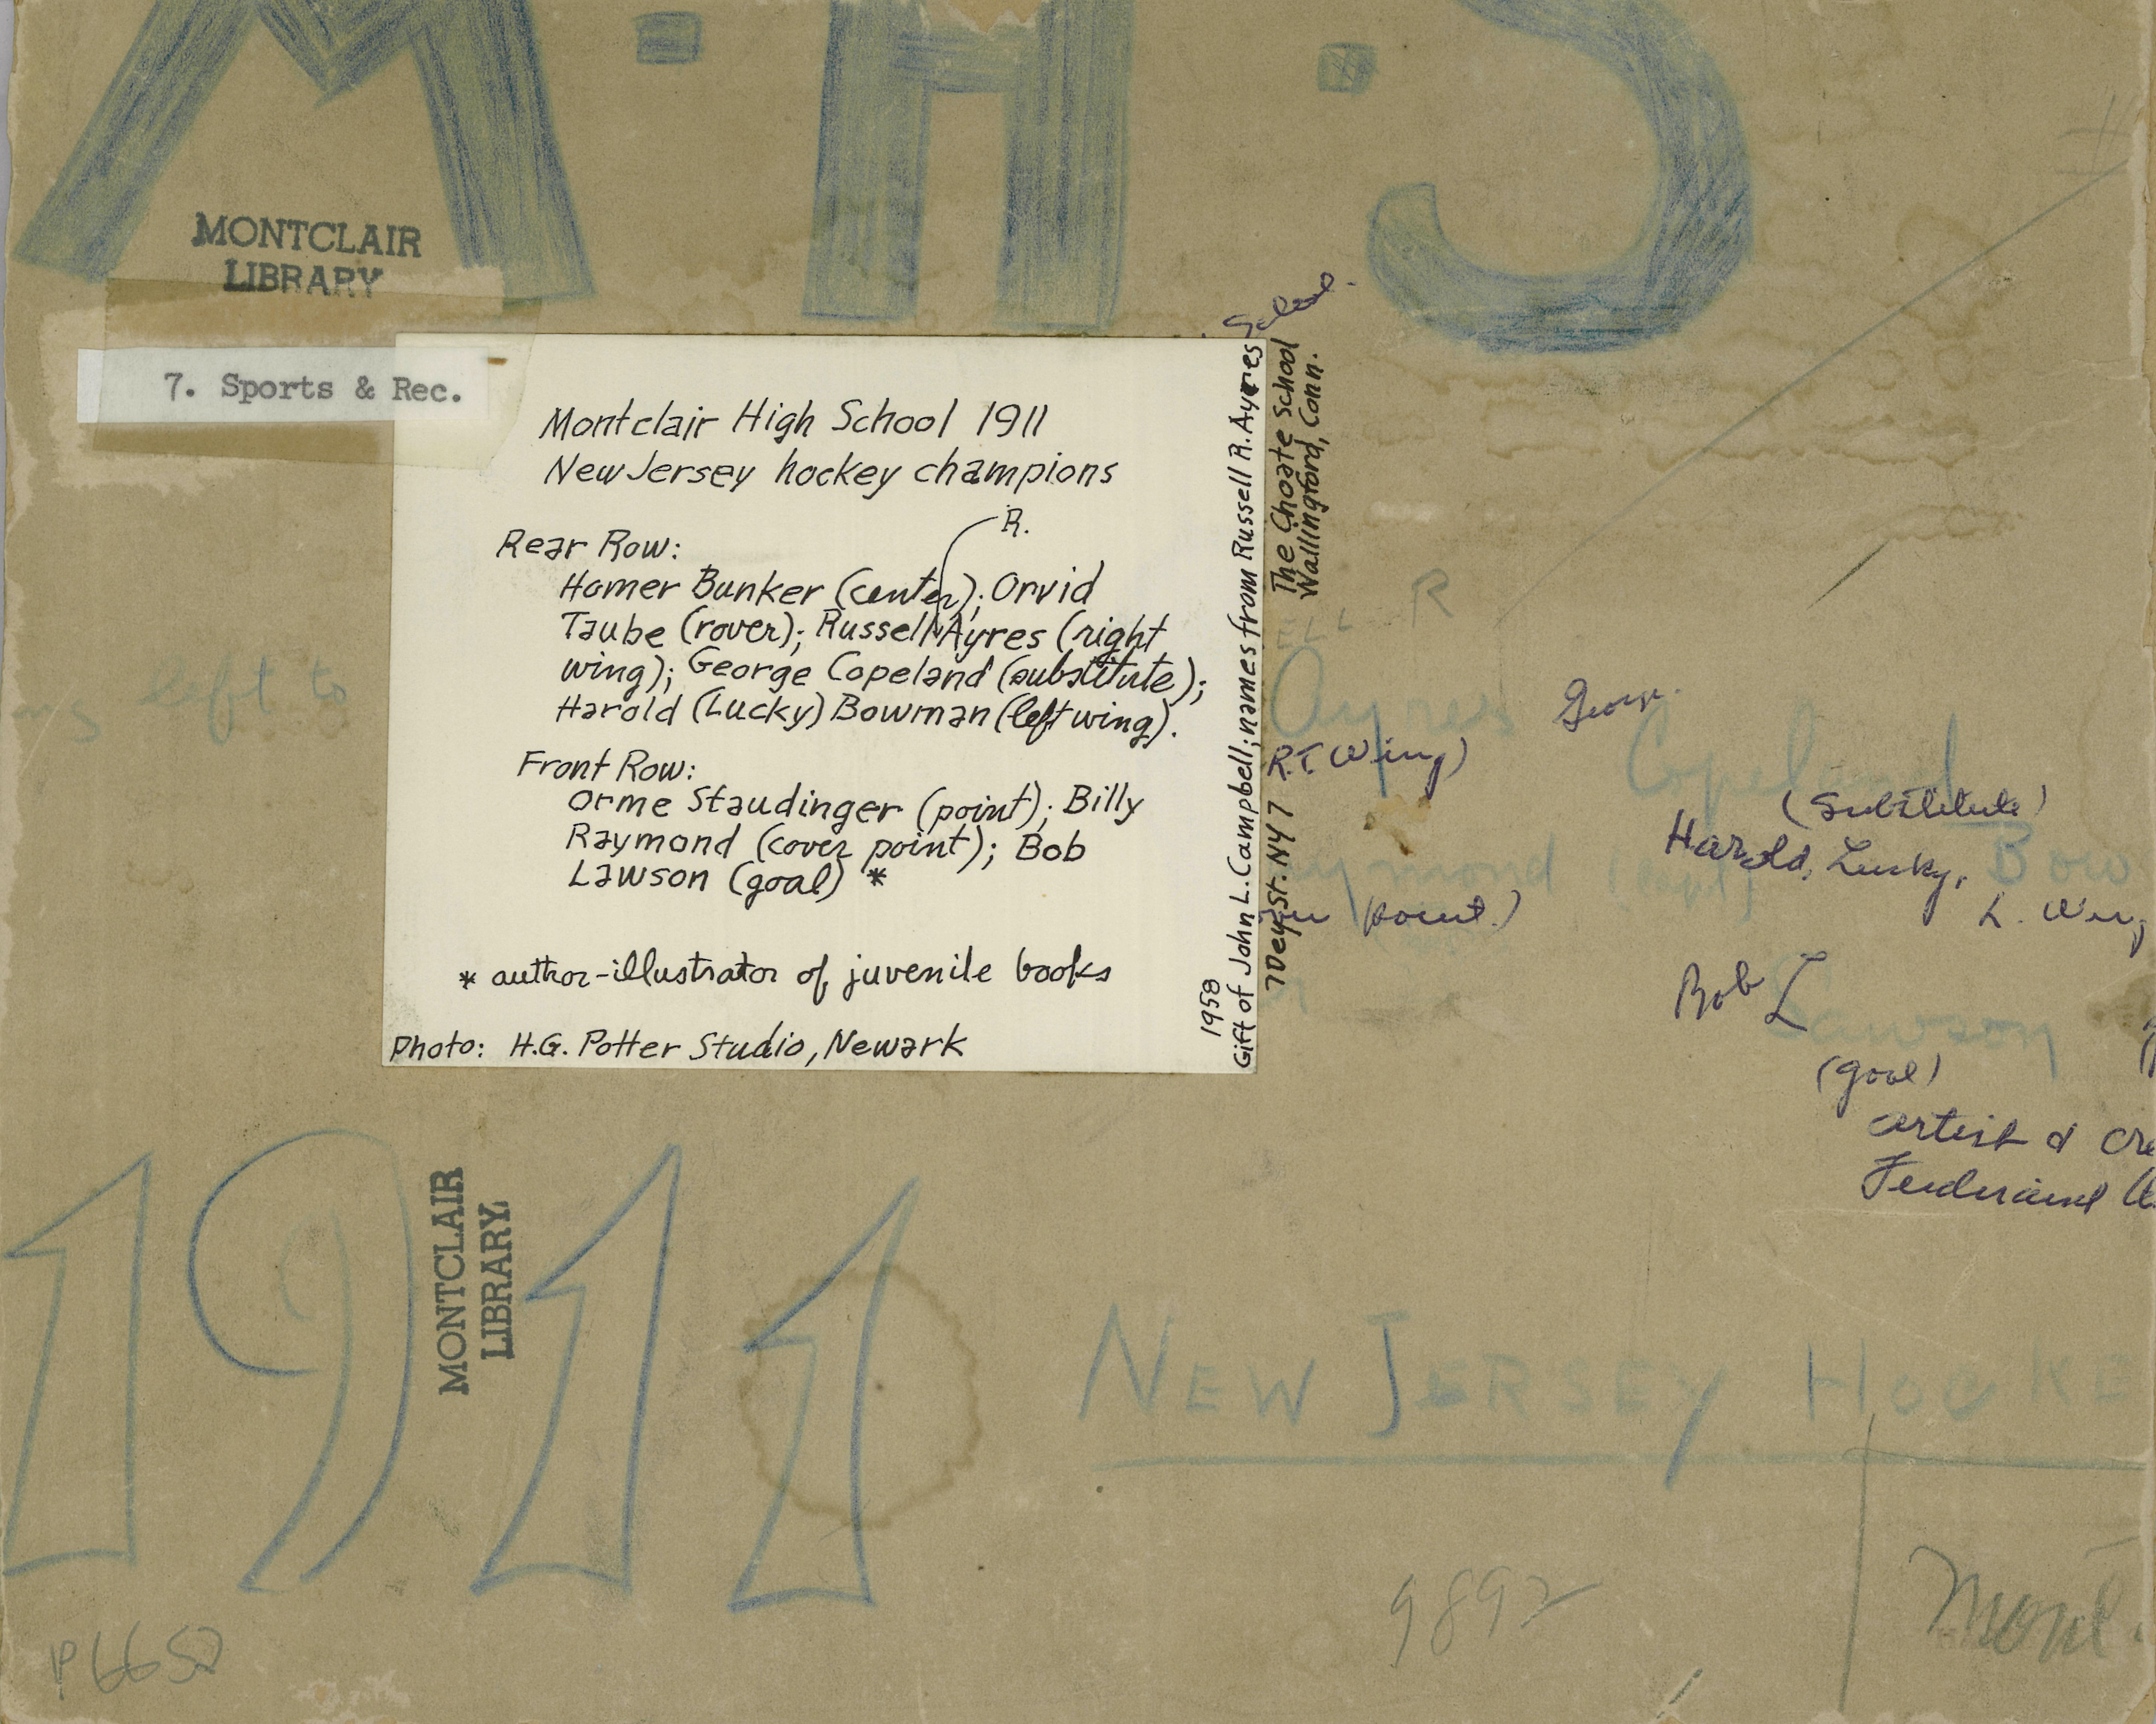 M·H·S
MONTCLAIR
LIBRARY
7. Sports & Rec.
Montclair High School 1911
New Jersey hockey champions
R.
Rear Row:
Homer Bunker (center); Orvid
Taube (rover); Russell Ayres (right
wing); George Copeland (substitute);
Harold (Lucky) Bowman (left wing).
Front Row:
Orme Staudinger (point); Billy
Raymond (cover point); Bob
Lawson (goal) *
* author-illustrator of juvenile books
Photo: H.G. Potter Studio, Newark
1958
Gift of John L. Campbell; names from Russell R. Ayres
7 Dey St. NY 7
The Choate School
Wallingford, Conn.
left to
ELL R
Ayres
R.T. Wing)
George
Copeland
(Substitute)
Harold, Lucky, Bow
L. Wing
ymond (Capt)
point.)
Bob Lawson
(goal)
artist & cre
Ferdinand
1911
MONTCLAIR
LIBRARY
NEW JERSEY HOCKE
9892
Mont.
P6652